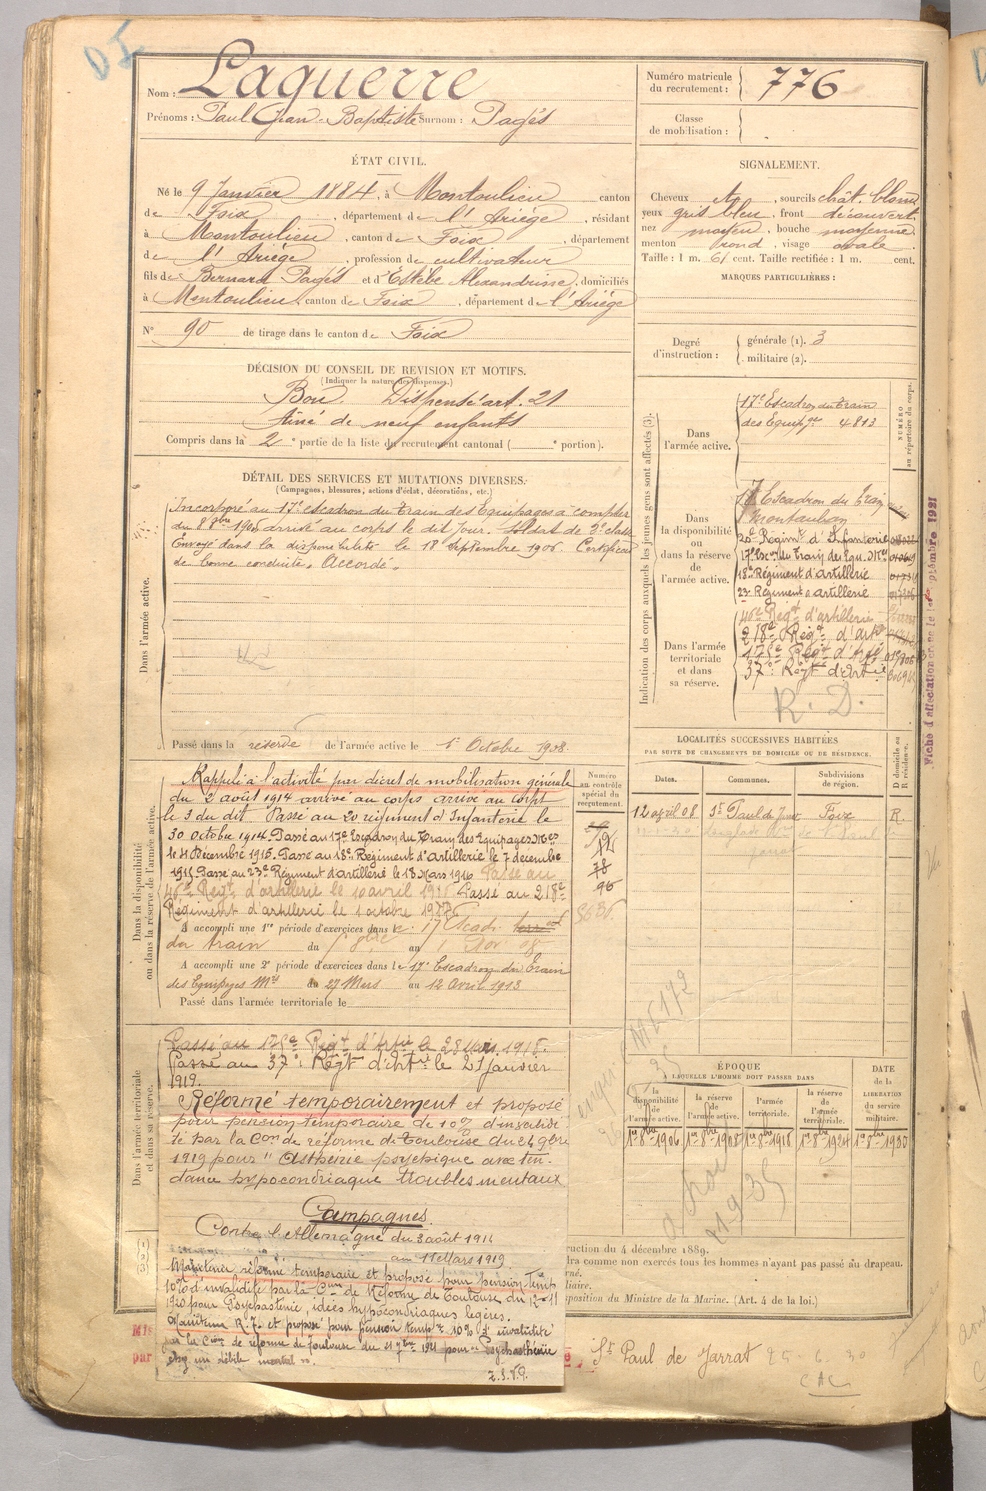 D I
Nom : Laguerre
Prénoms : Paul Jean-Baptiste Surnom : Pagès
Numéro matricule du recrutement : 776
Classe de mobilisation :
ÉTAT CIVIL.
Né le 9 Janvier 1884, à Montoulieu canton
de Foix, département de l'Ariège, résidant
à Montoulieu, canton de Foix, département
de l'Ariège, profession de cultivateur
fils de Bernard Pagès et d'Estèbe Alexandrine, domiciliés
à Montoulieu, canton de Foix, département de l'Ariège
N° 90 de tirage dans le canton de Foix
SIGNALEMENT.
Cheveux , sourcils chât. blond
yeux gris bleu, front découvert
nez moyen, bouche moyenne
menton rond, visage ovale
Taille : 1 m. 61 cent. Taille rectifiée : 1 m. cent.
MARQUES PARTICULIÈRES :
Degré d'instruction : générale (1). 3
militaire (2).
DÉCISION DU CONSEIL DE REVISION ET MOTIFS.
(Indiquer la nature des dispenses.)
Bon Dispensé art. 21
aîné de neuf enfants
Compris dans la 2e partie de la liste du recrutement cantonal ( e portion).
DÉTAIL DES SERVICES ET MUTATIONS DIVERSES.
(Campagnes, blessures, actions d'éclat, décorations, etc.)
Dans l'armée active.
Incorporé au 17e escadron du train des Equipages à compter
du 8 8bre 1905 arrivé au corps le dit jour. Soldat de 2e classe
Envoyé dans la disponibilité le 18 Septembre 1906. Certificat
de bonne conduite. Accordé.
Passé dans la réserve de l'armée active le 1er Octobre 1908
Indication des corps auxquels les jeunes gens sont affectés (3).
NUMÉRO au répertoire du corps.
Dans l'armée active.
17e Escadron du Train
des Equipges 4813
Dans la disponibilité ou dans la réserve de l'armée active.
17 Escadron du Train
Montauban
20e Régimt d'Infanterie
17e Escon du Train des Equ. Mres
18e Régiment d'Artillerie
23e Régiment d'Artillerie
Dans l'armée territoriale et dans sa réserve.
46e Régt d'artillerie
218e Régt d'artie
175e Régt d'artie
37e Régt d'Artie
R. D.
Fiche d'affectation
Dans la disponibilité ou dans la réserve de l'armée active.
Rappelé à l'activité par décret de mobilisation générale
du 2 août 1914 arrivé au corps arrivé au corps
le 3 du dit. Passé au 20 régiment d'Infanterie le
30 octobre 1914. Passé au 17e Escadron du Train des Equipages Mres
le 4 Décembre 1915. Passé au 18e Régiment d'Artillerie le 7 décembre
1915. Passé au 23e Régiment d'Artillerie le 18 Mars 1916 Passé au
46e Régt d'artillerie le 10 avril 1916 Passé au 218e
Régiment d'artillerie le 1 octobre
A accompli une 1re période d'exercices dans le 17 Escad.
du train du au 1 Nov 08
A accompli une 2e période d'exercices dans le 17e Escadron du Train
des Equipges Mres du 27 Mars au 12 Avril 1913
Passé dans l'armée territoriale le
Numéro au contrôle spécial du recrutement.
12
78
96
LOCALITÉS SUCCESSIVES HABITÉES
PAR SUITE DE CHANGEMENTS DE DOMICILE OU DE RÉSIDENCE.
Dates. Communes. Subdivisions de région. D domicile ou R résidence.
12 avril 08 St Paul de Jarrat Foix R.
Dans l'armée territoriale et dans sa réserve.
Passé au 175e Régt d'Artie le 28 Mars 1918.
Passé au 37e Régt d'Artie le 21 Janvier
1919.
Réformé temporairement et proposé
pour pension temporaire de 10% d'invalidi
té par la Con de réforme de Toulouse du 24 9bre
1919 pour " Asthénie psychique avec ten-
dance hypocondriaque troubles mentaux
Campagnes.
Contre l'Allemagne du 3 août 1914
au 11 Mars 1919
Maintenu réformé temporaire et proposé pour pension temp
10% d'invalidité par la Con de Réforme de Toulouse du 12-11
1920 pour Psychasténie, idées hypocondriaques légères.
Maintenu R.T. et proposé pour pension tempre 10% d'invalidité
par la Cion de réforme de Toulouse du 21 7bre 1921 pour " Psychasthénie
chez un débile mental ".
ÉPOQUE
À LAQUELLE L'HOMME DOIT PASSER DANS
la disponibilité de l'armée active. la réserve de l'armée active. l'armée territoriale. la réserve de l'armée territoriale.
DATE de la LIBÉRATION du service militaire.
1er 8bre 1906 1er 8bre 1908 1er 8bre 1918 1er 8bre 1924 1er 8bre 1930
ruction du 4 décembre 1889.
dra comme non exercés tous les hommes n'ayant pas passé au drapeau.
position du Ministre de la Marine. (Art. 4 de la loi.)
St Paul de Jarrat 25-6-30